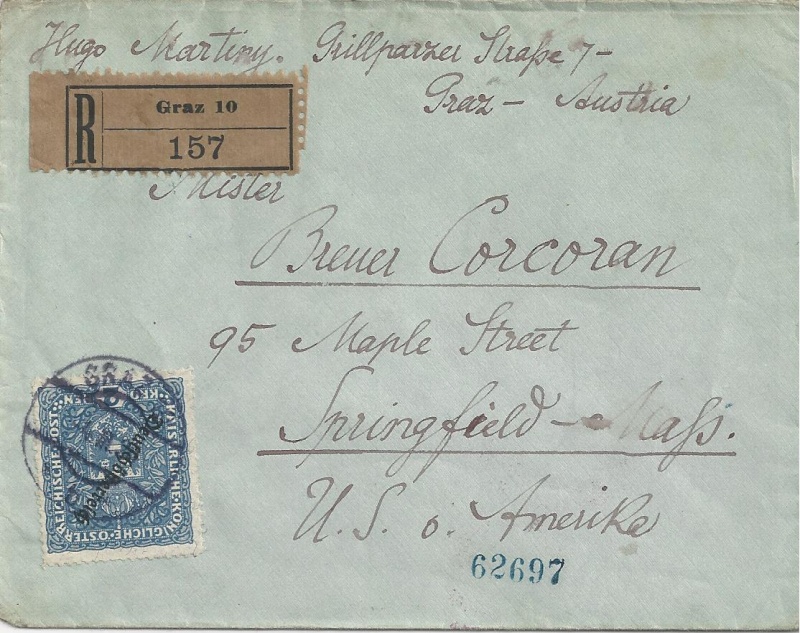 Hugo Martiny. Grillparzer Straße 7-
Graz - Austria
R
Graz 10
157
Mister
Breuer Corcoran
95 Maple Street
Springfield - Mass.
U. S. o. Amerika
62697
GRAZ
KAISERLICHE·KÖNIGLICHE·ÖSTERREICHISCHE·POST
Deutschösterreich